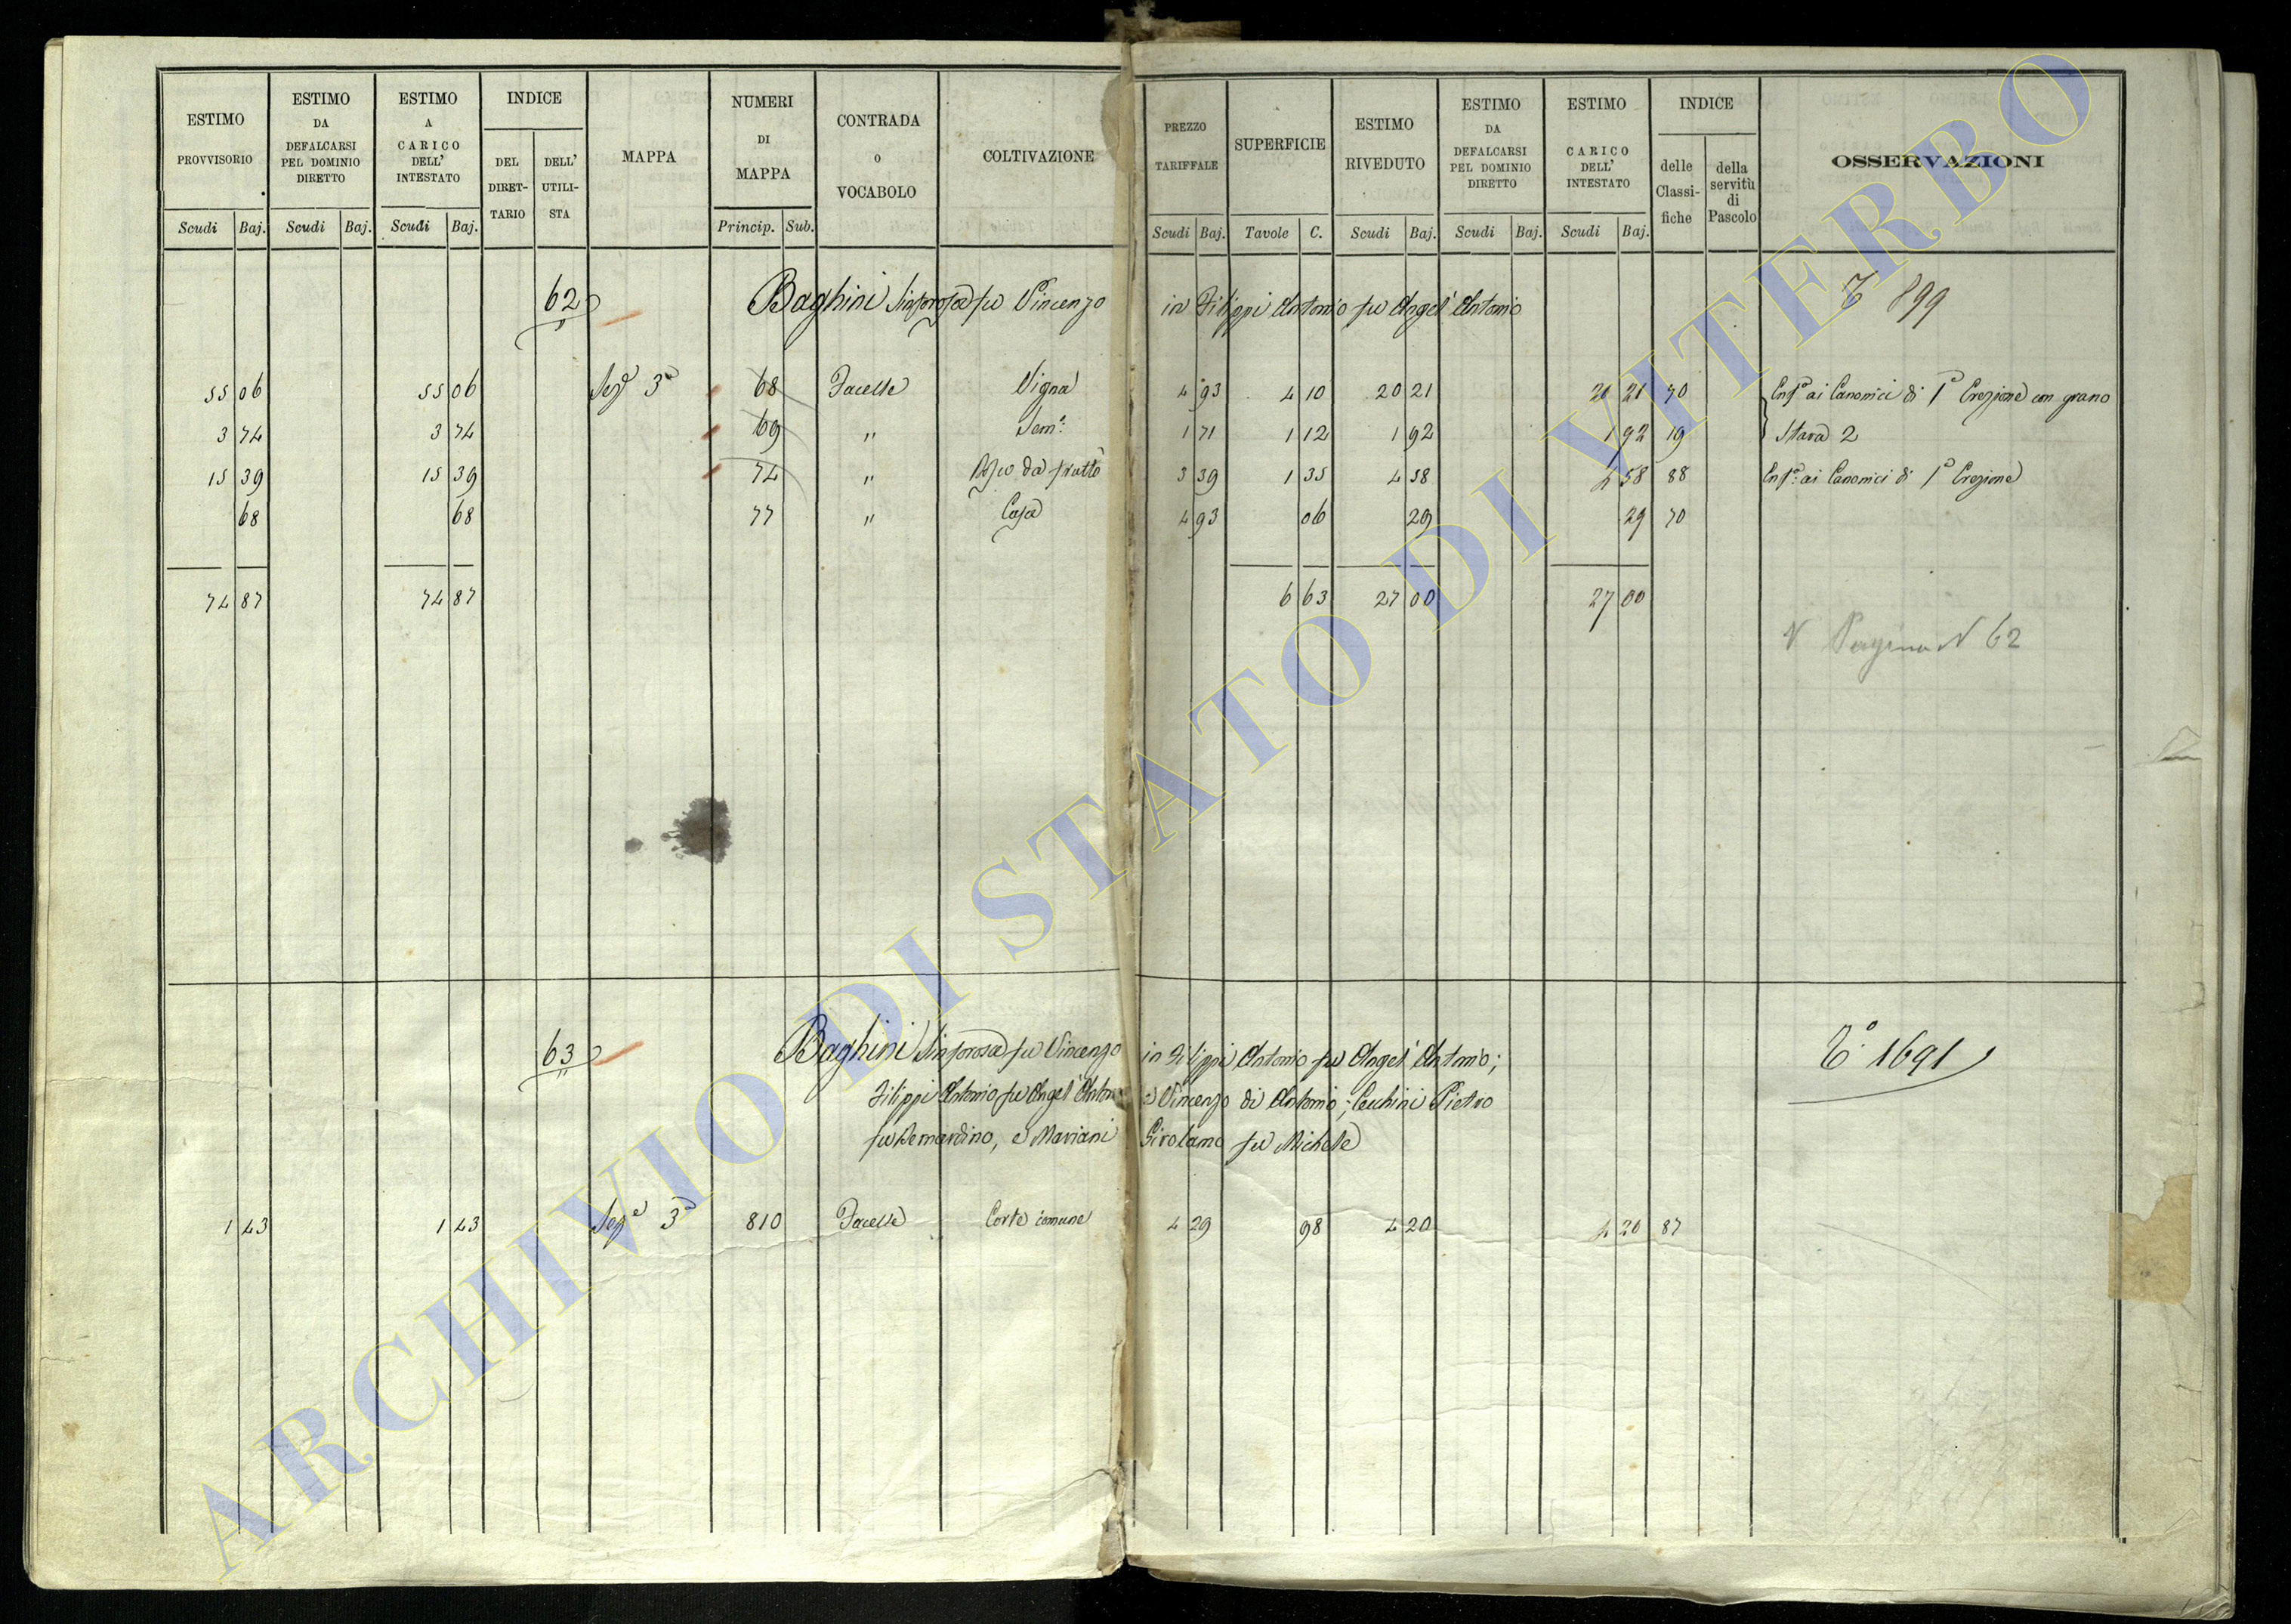 ESTIMO PROVVISORIO Scudi Baj.
ESTIMO DA DEFALCARSI PEL DOMINIO DIRETTO Scudi Baj.
ESTIMO A CARICO DELL' INTESTATO Scudi Baj.
INDICE DEL DIRET-TARIO DELL' UTILI-STA
MAPPA
NUMERI DI MAPPA Princip. Sub.
CONTRADA O VOCABOLO
COLTIVAZIONE
PREZZO TARIFFALE Scudi Baj.
SUPERFICIE Tavole C.
ESTIMO RIVEDUTO Scudi Baj.
ESTIMO DA DEFALCARSI PEL DOMINIO DIRETTO Scudi Baj.
ESTIMO A CARICO DELL' INTESTATO Scudi Baj.
INDICE delle Classi-fiche della servitù di Pascolo
OSSERVAZIONI
62 Baghini Sinforosa fu Vincenzo in Filippi Antonio fu Angel' Antonio 899
55 06 55 06 Sez.e 3a 68 Facelle Vigna 4 93 4 10 20 21 20 21 70 Enf. ai Canonici di 1a Erezione con grano
3 74 3 74 69 " Sem.o 1 71 1 12 1 92 1 92 19 Stara 2
15 39 15 39 74 " da frutto 3 39 1 35 4 58 4 58 88 Enf. ai Canonici di 1a Erezione
68 68 77 " Casa 4 93 06 29 29 70
74 87 74 87 6 63 27 00 27 00
V Pagina N 62
63 Baghini Sinforosa fu Vincenzo in Filippi Antonio fu Angel' Antonio; 1691
Filippi Antonio fu Angel' Antonio e Vincenzo di Antonio; Cecchini Pietro
fu Bernardino, e Mariani Girolamo fu Michele
1 43 1 43 Sez.e 3a 810 Facelle Corte comune 4 29 98 4 20 4 20 87
ARCHIVIO DI STATO DI VITERBO